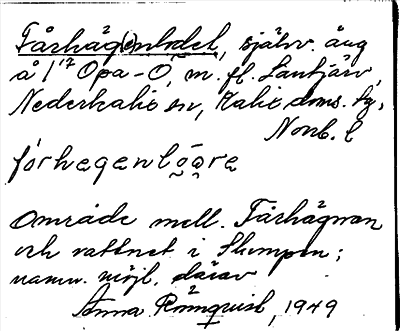 Fårhäg(e)nbdel, självv. äng
å 1¹² Opa-Ö, m. fl. Lantjärv,
Nederkalix sn, Kalix doms. hg,
Nonb. l
fórhagenl
Område mell. Fårhägnan
och vattnet i Skompen;
namn. möjl. därav
Anna Rönnqvist, 1949